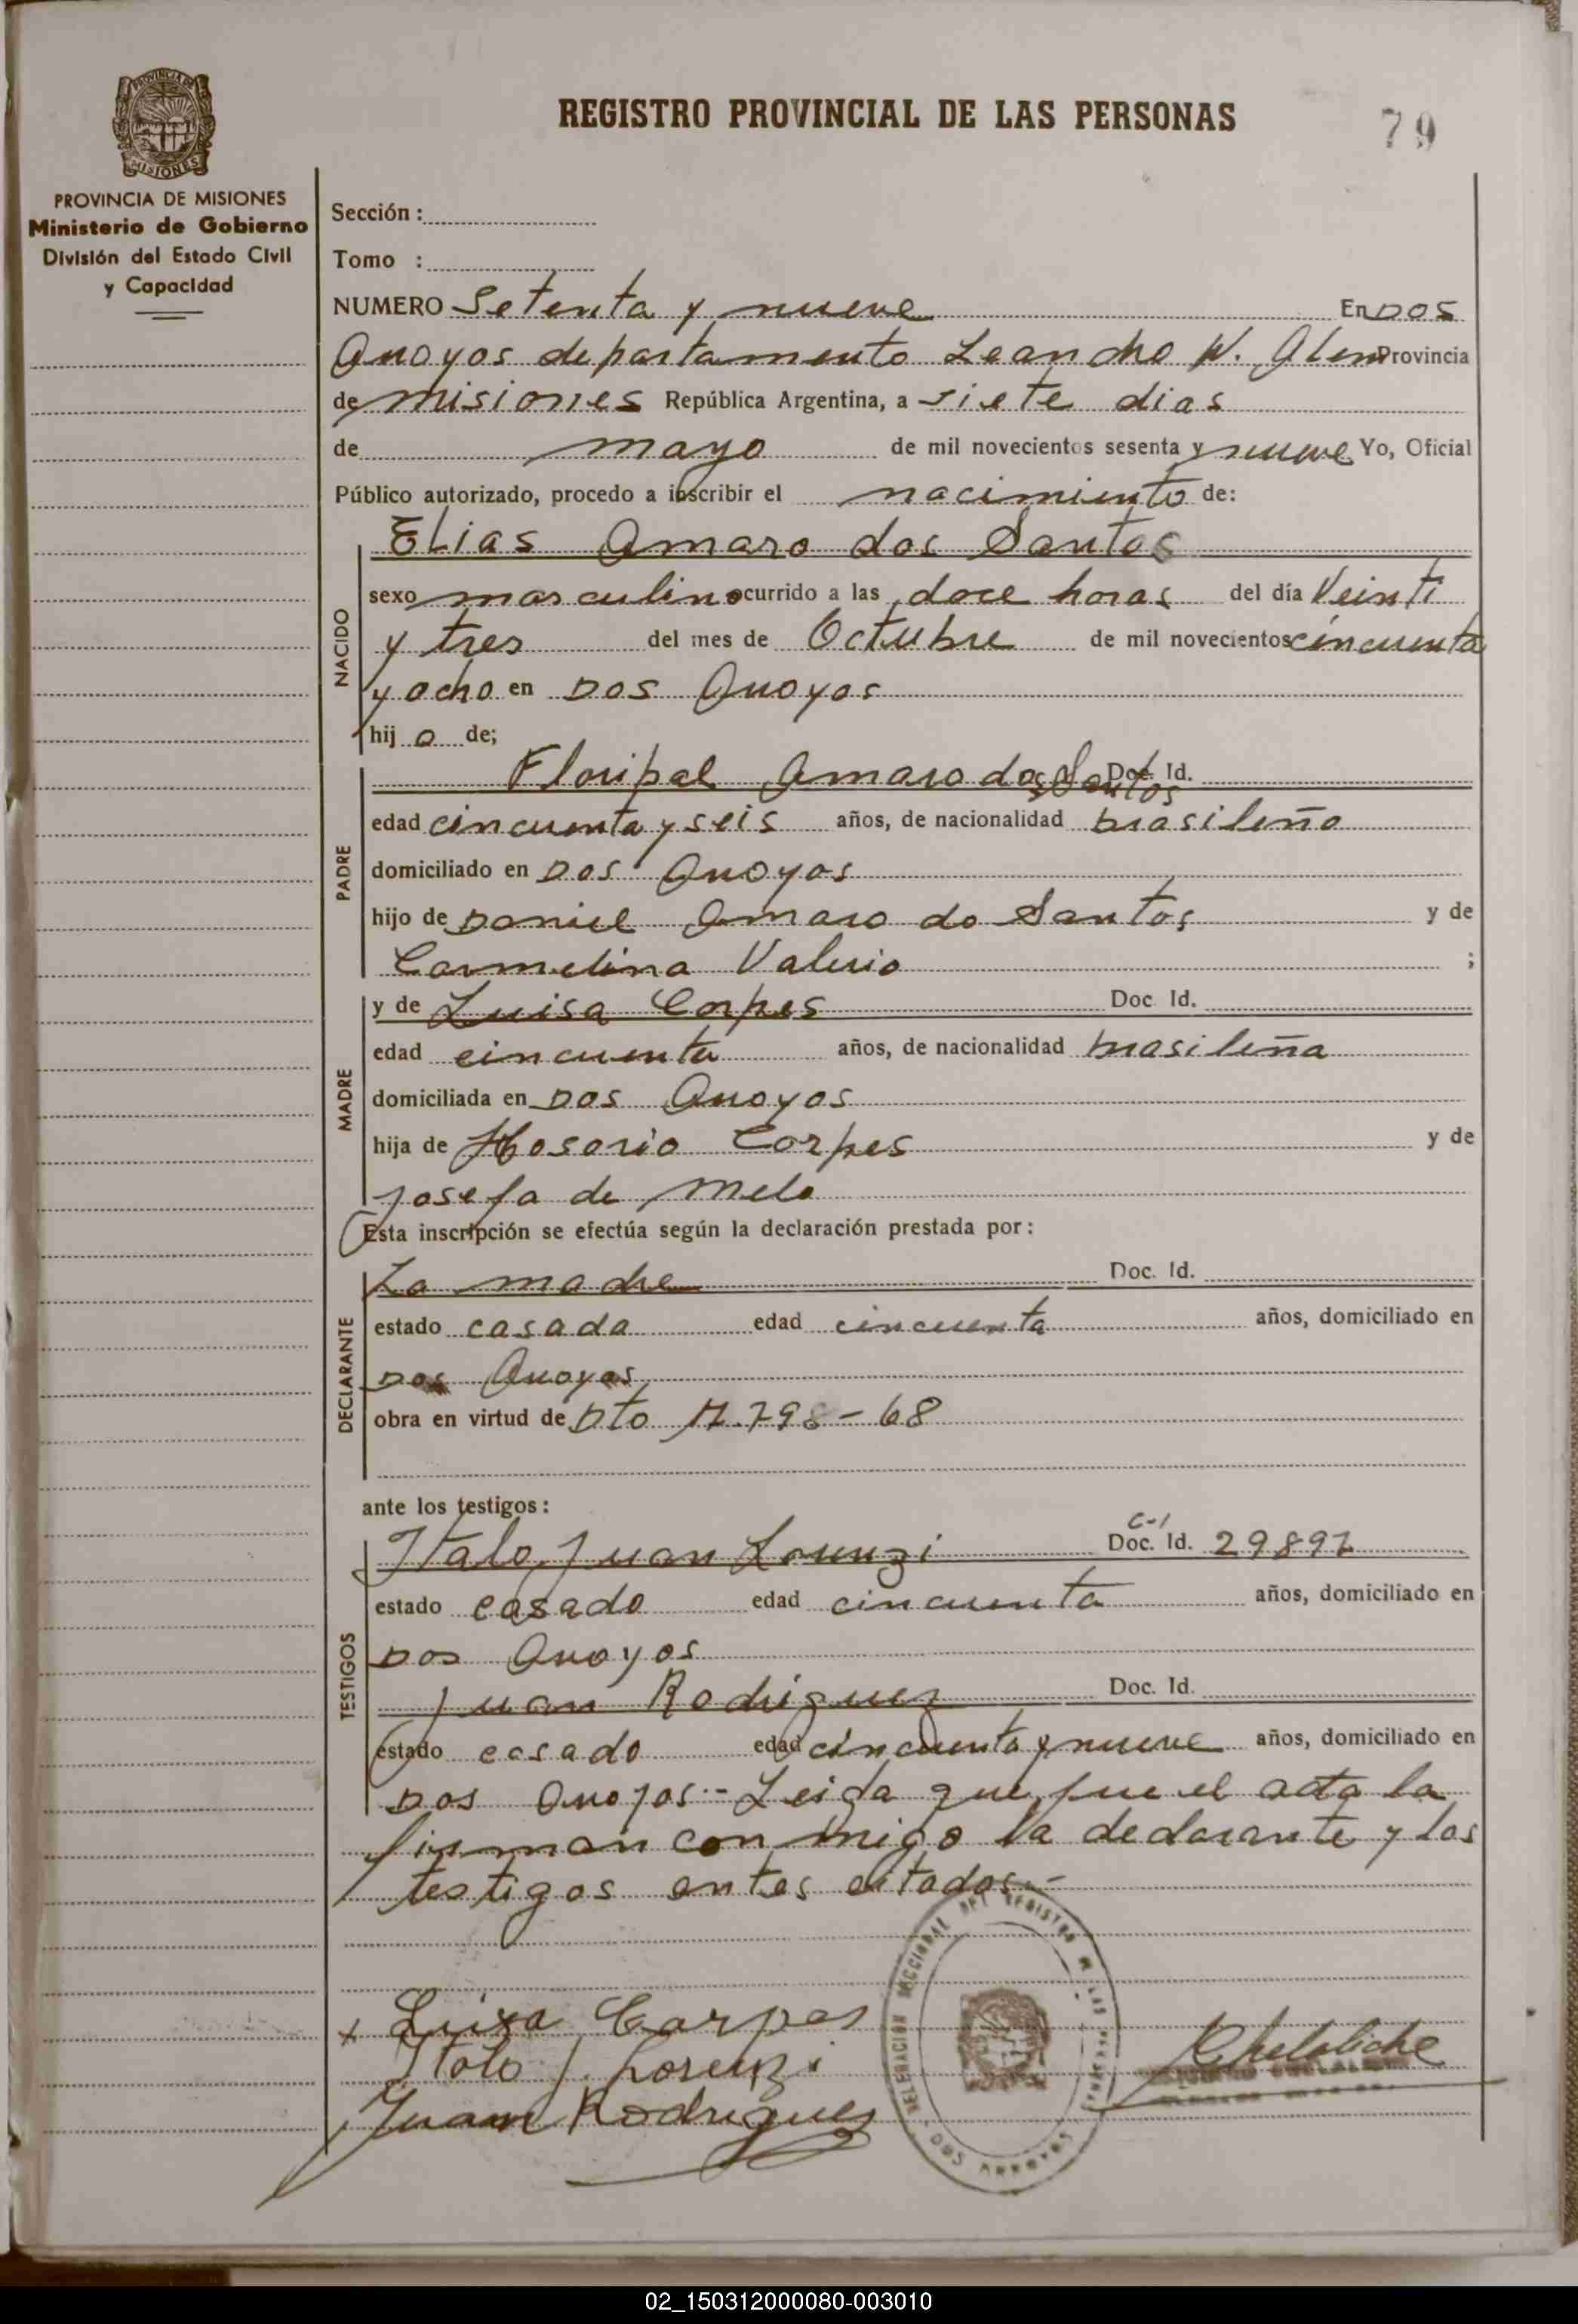 REGISTRO PROVINCIAL DE LAS PERSONAS
79
PROVINCIA DE MISIONES
PROVINCIA DE MISIONES
Ministerio de Gobierno
División del Estado Civil
y Capacidad
Sección :
Tomo :
NUMERO Setenta y nueve En DOS
Arroyos departamento Leandro N. Alem Provincia
de misiones República Argentina, a siete dias
de mayo de mil novecientos sesenta y nueve Yo, Oficial
Público autorizado, procedo a inscribir el nacimiento de:
Elias Amaro dos Santos
NACIDO
sexo masculino ocurrido a las doce horas del día Veinti
y tres del mes de Octubre de mil novecientos cincuenta
y ocho en Dos Arroyos
hij o de;
PADRE
Floripal Amaro dos Santos Doc. Id.
edad cincuenta y seis años, de nacionalidad brasileño
domiciliado en Dos Arroyos
hijo de Daniel Amaro do Santos y de
Carmelina Valerio ;
MADRE
y de Luisa Corpes Doc. Id.
edad cincuenta años, de nacionalidad brasileña
domiciliada en Dos Arroyos
hija de Hosorio Corpes y de
Josefa de Melo
Esta inscripción se efectúa según la declaración prestada por:
DECLARANTE
La madre Doc. Id.
estado casada edad cincuenta años, domiciliado en
Dos Arroyos
obra en virtud de Dto 798-68
ante los testigos:
TESTIGOS
Italo Juan Lorenzi Doc. Id. C-I 29897
estado casado edad cincuenta años, domiciliado en
Dos Arroyos
Juan Rodriguez Doc. Id.
estado casado edad cincuenta y nueve años, domiciliado en
Dos Arroyos.- Leida que fue el acta la
firman con migo la declarante y los
testigos antes citados.-
x Luiza Carpes
Italo J. Lorenzi
Juan Rodriguez
DELEGACIÓN SECCIONAL DEL REGISTRO DE LAS PERSONAS
DOS ARROYOS
02_150312000080-003010